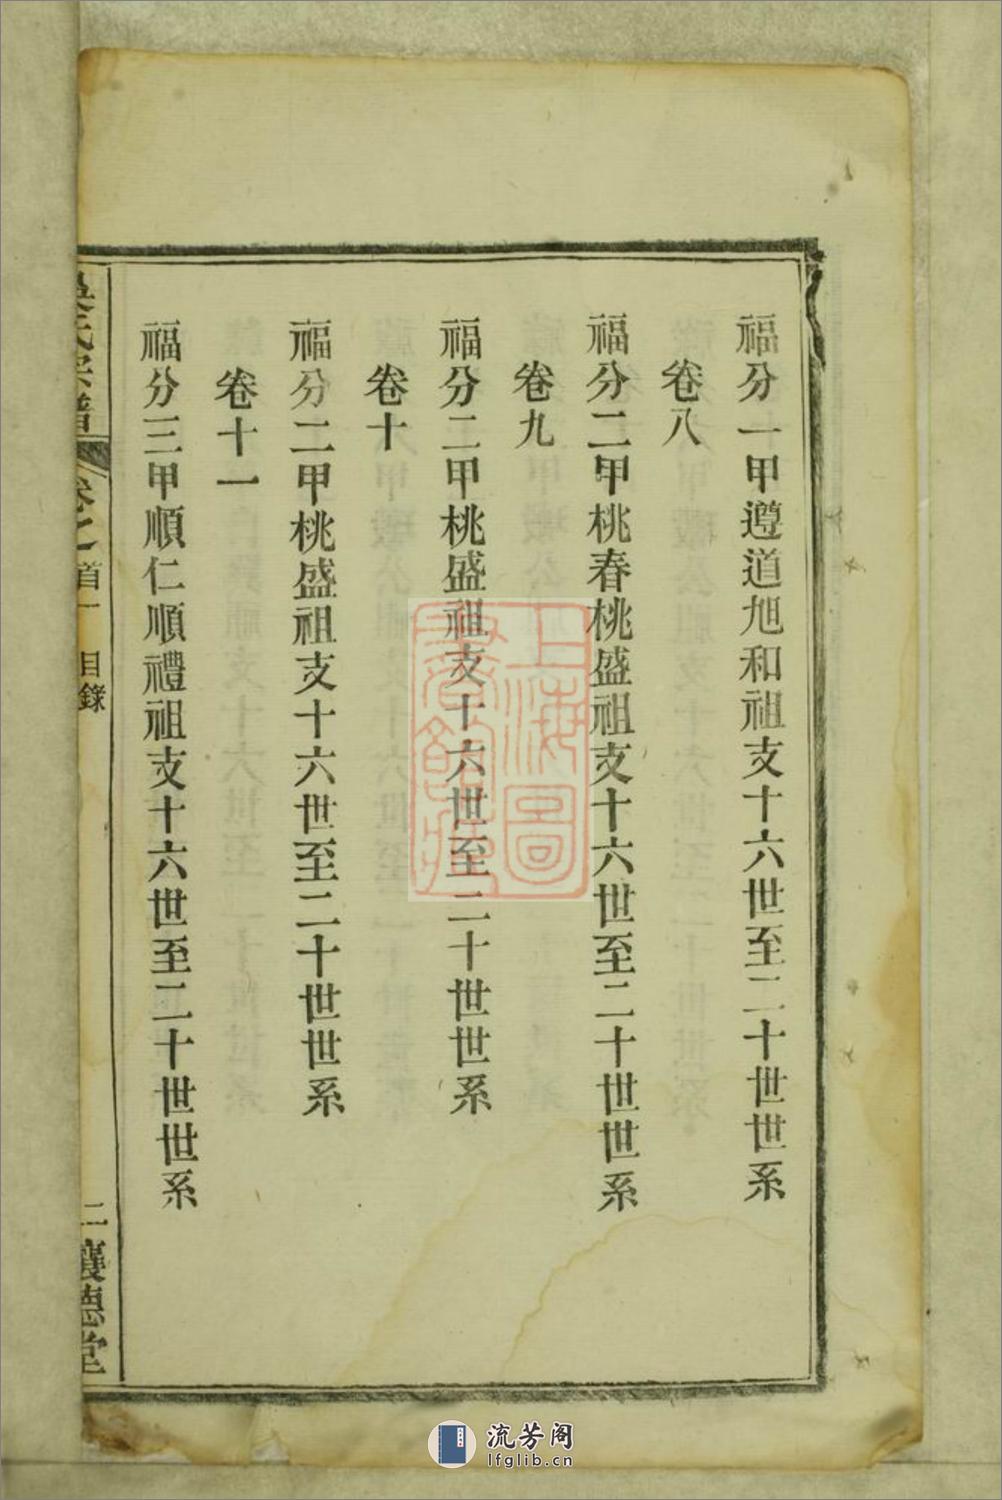 福分一甲遵道旭和祖支十六世至二十世世系
卷八
福分二甲桃春桃盛祖支十六世至二十世世系
卷九
福分二甲桃盛祖支十六世至二十世世系
卷十
福分二甲桃盛祖支十六世至二十世世系
卷十一
福分三甲順仁順禮祖支十六世至二十世世系
吳氏宗譜
卷之首一 目錄
二 襄德堂
上海圖書館藏
流芳阁
lfglib.cn